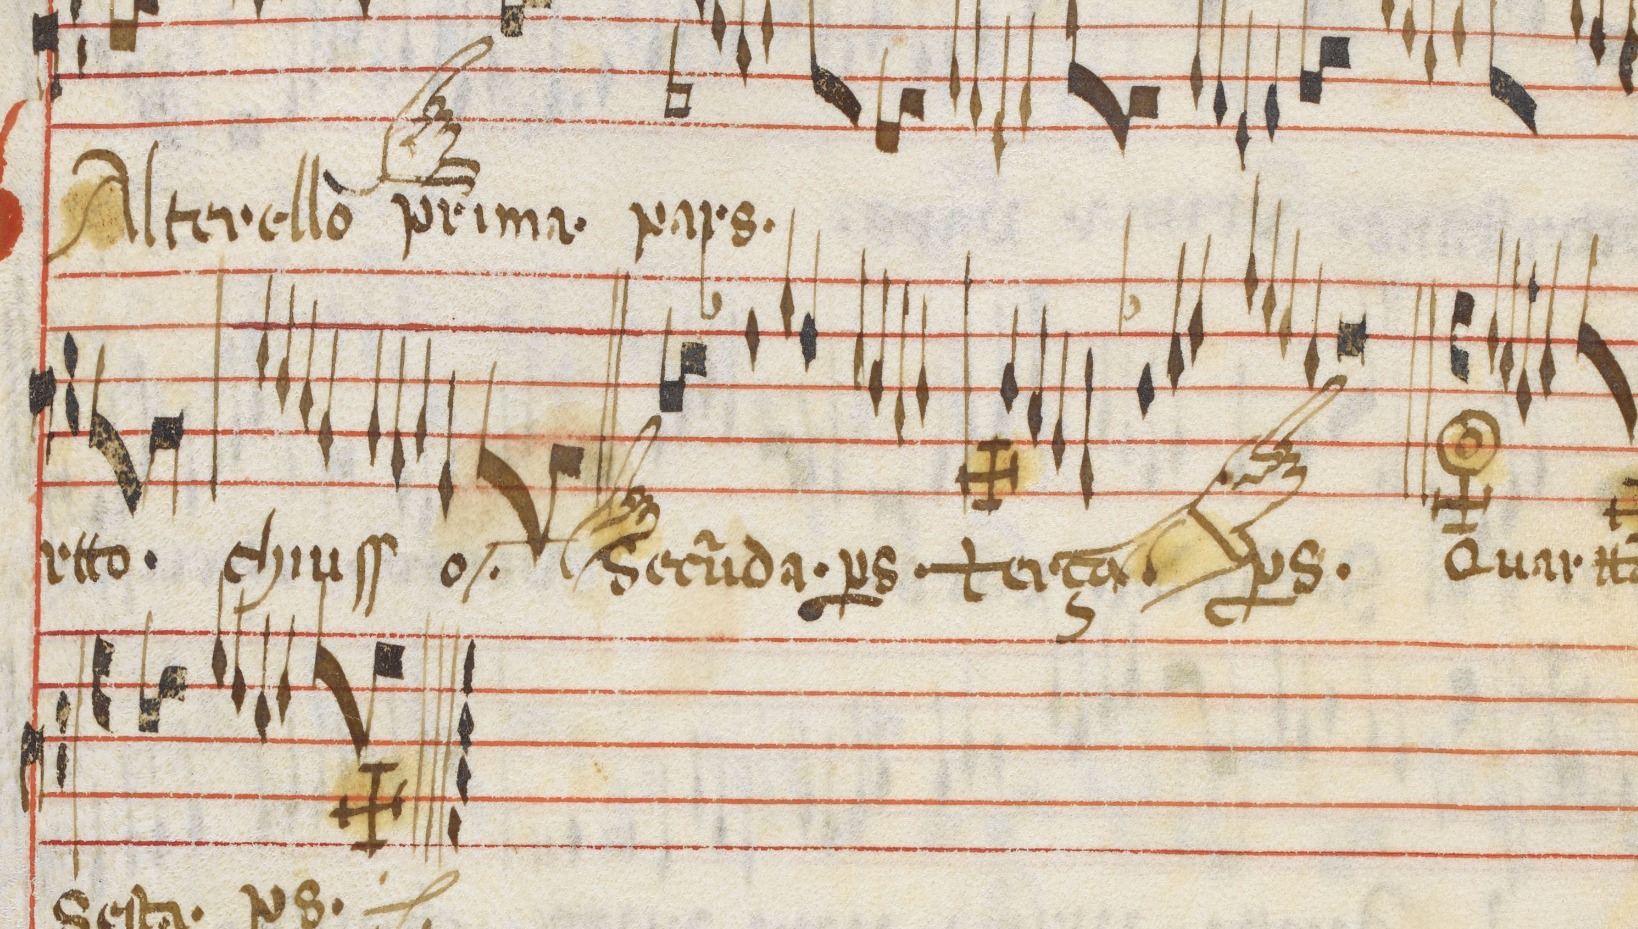 Alterello prima pars.
retto. chiusso. Secūda. ps. terça. ps. Quartta
Sesta. ps.